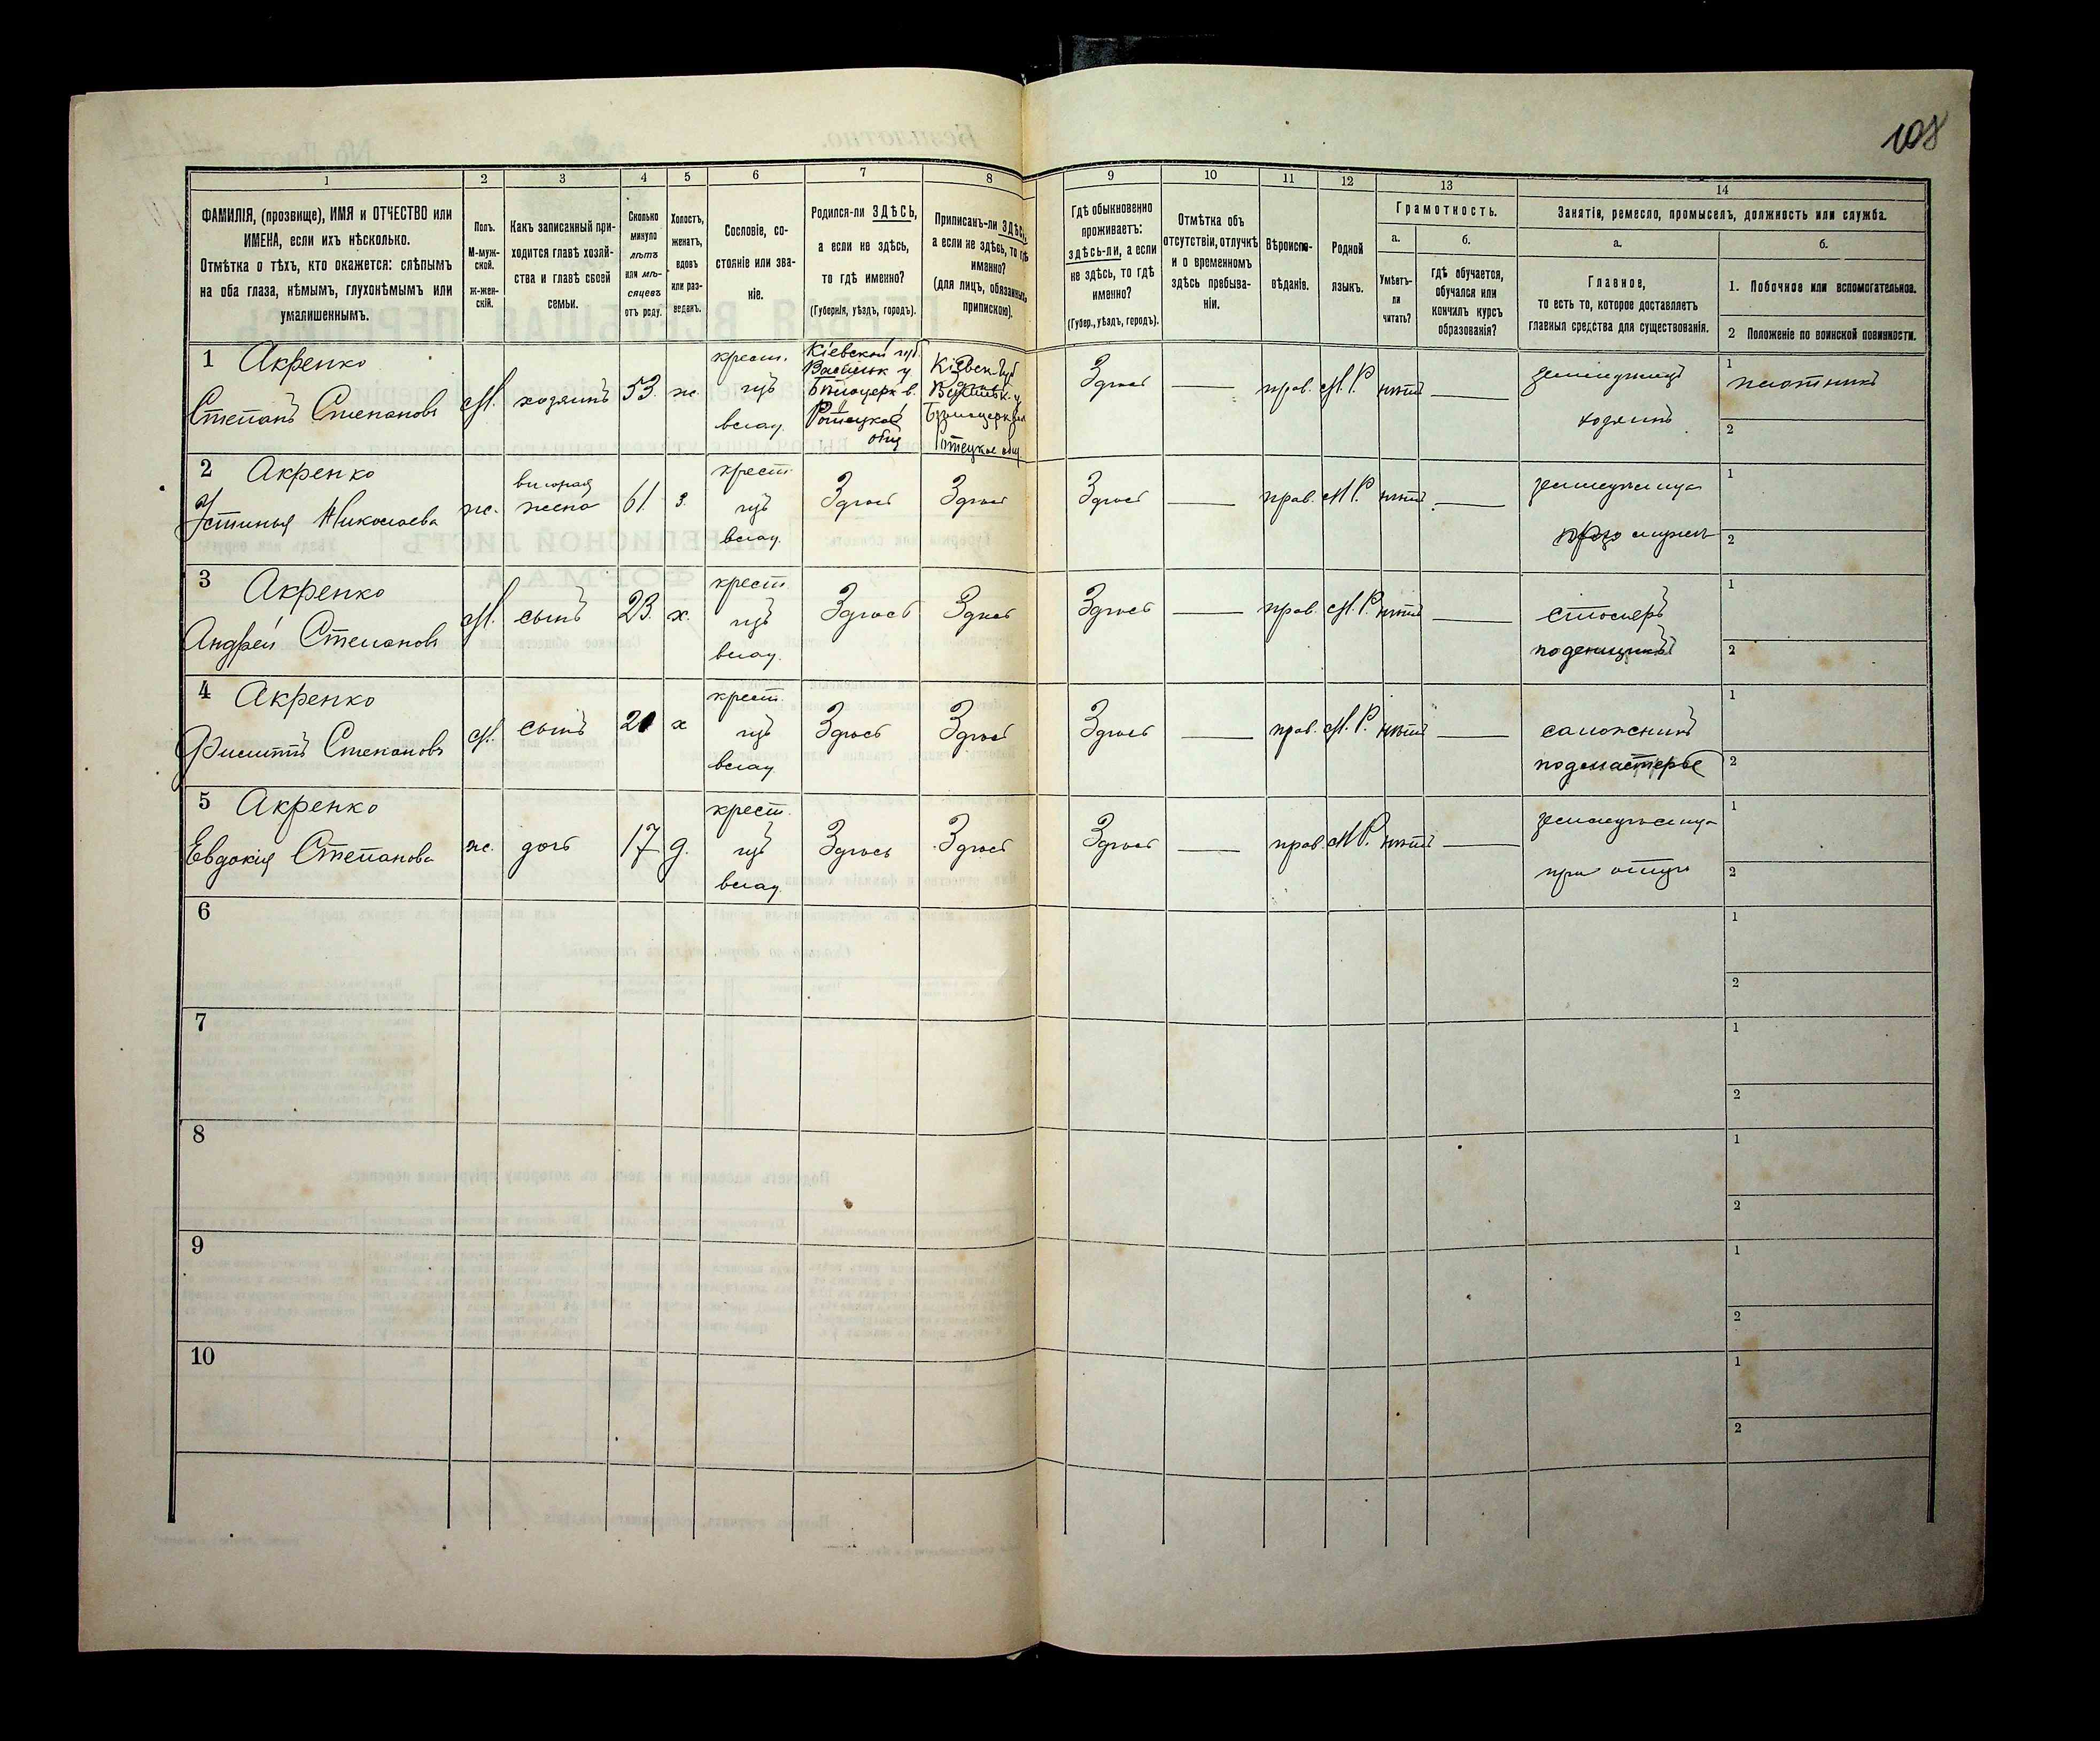 108
1 2 3 4 5 6 7 8 9 10 11 12 13 14
ФАМИЛІЯ, (прозвище), ИМЯ и ОТЧЕСТВО или
ИМЕНА, если ихъ нѣсколько.
Отмѣтка о тѣхъ, кто окажется: слѣпымъ
на оба глаза, нѣмымъ, глухонѣмымъ или
умалишеннымъ.
Полъ.
М-муж-
ской.
ж-жен-
скій.
Какъ записанный при-
ходится главѣ хозяй-
ства и главѣ своей
семьи.
Сколько
минуло
лѣтъ
или мѣ-
сяцевъ
отъ роду.
Холостъ,
женатъ,
вдовъ
или раз-
веденъ.
Сословіе, со-
стояніе или зва-
ніе.
Родился-ли ЗДѢСЬ,
а если не здѣсь,
то гдѣ именно?
(Губернія, уѣздъ, городъ).
Приписанъ-ли ЗДѢСЬ,
а если не здѣсь, то гдѣ
именно?
(для лицъ, обязанныхъ
припискою).
Гдѣ обыкновенно
проживаетъ:
здѣсь-ли, а если
не здѣсь, то гдѣ
именно?
(Губер., уѣздъ, городъ).
Отмѣтка объ
отсутствіи, отлучкѣ
и о временномъ
здѣсь пребыва-
ніи.
Вѣроиспо-
вѣданіе.
Родной
языкъ.
Грамотность.
а.
Умѣетъ-
ли
читать?
б.
гдѣ обучается,
обучался или
кончилъ курсъ
образованія?
Занятіе, ремесло, промыселъ, должность или служба.
а.
Главное,
то есть то, которое доставляетъ
главныя средства для существованія.
б.
1. Побочное или вспомогательное.
2 Положеніе по воинской повинности.
1 Акренко
Степанъ Степановъ
М. хозяинъ 53. ж.
крест.
изъ
влад.
Кіевской губ.
Васильк у.
Бѣлоцерк в.
общ
Кіевск губ
Здѣсь
прав. М. Р. нѣтъ
земледѣлецъ
хозяинъ
1 плотникъ
2
2 Акренко
Устинья Николаева
ж.
вторая
жена
61. з.
крест.
изъ
влад.
Здѣсь Здѣсь Здѣсь
прав. М Р. нѣтъ
земледѣлица
при мужѣ
1
2
3 Акренко
Андрей Степановъ
М. сынъ 23. х.
крест.
изъ
влад.
Здѣсь Здѣсь Здѣсь
прав. М. Р. нѣтъ
столяръ
поденщикъ
1
2
4 Акренко
Филиппъ Степановъ
М. сынъ х
крест.
изъ
влад
Здѣсь Здѣсь Здѣсь
прав. М. Р. нѣтъ
сапожникъ
подмастерье
1
2
5 Акренко
Евдокія Степанова
ж. дочь 17 д.
крест.
изъ
влад.
Здѣсь Здѣсь Здѣсь
прав. М Р. нѣтъ
земледѣлица
при отцѣ
1
2
6
1
2
7
1
2
8
1
2
9
1
2
10
1
2